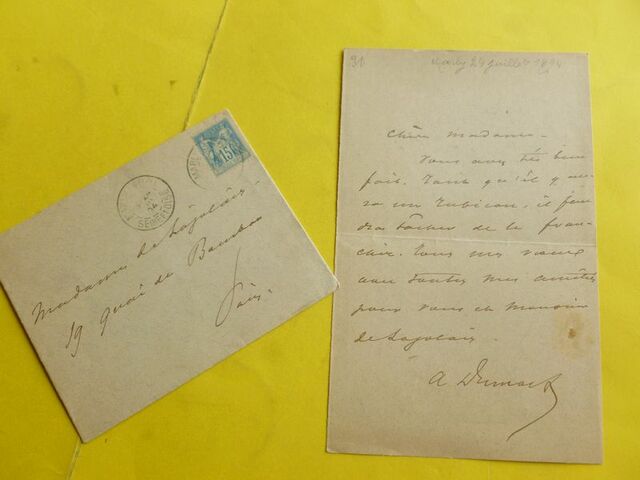 Madame de Lajolais.
19 Quai de Bourbon
Paris
15
SEINE ET OISE
91
Marly 24 juillet 1894
Chère Madame.
Vous avez très bien
fait. Tant qu'il y au-
ra un Rubicon, il fau-
dra tâcher de le fran-
chir. Tous mes vœux
avec toutes mes amitiés
pour vous et Monsieur
de Lajolais.
A Dumas f